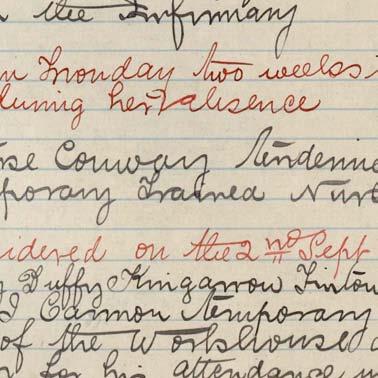 the Infirmary
on Monday two weeks
during her absence
rse Conway tendered
porary Trained Nurs
idered on the 2nd Sept
Duffy Kingarrow Fintow
J Cannon temporary
of the Workhouse
for his attendance